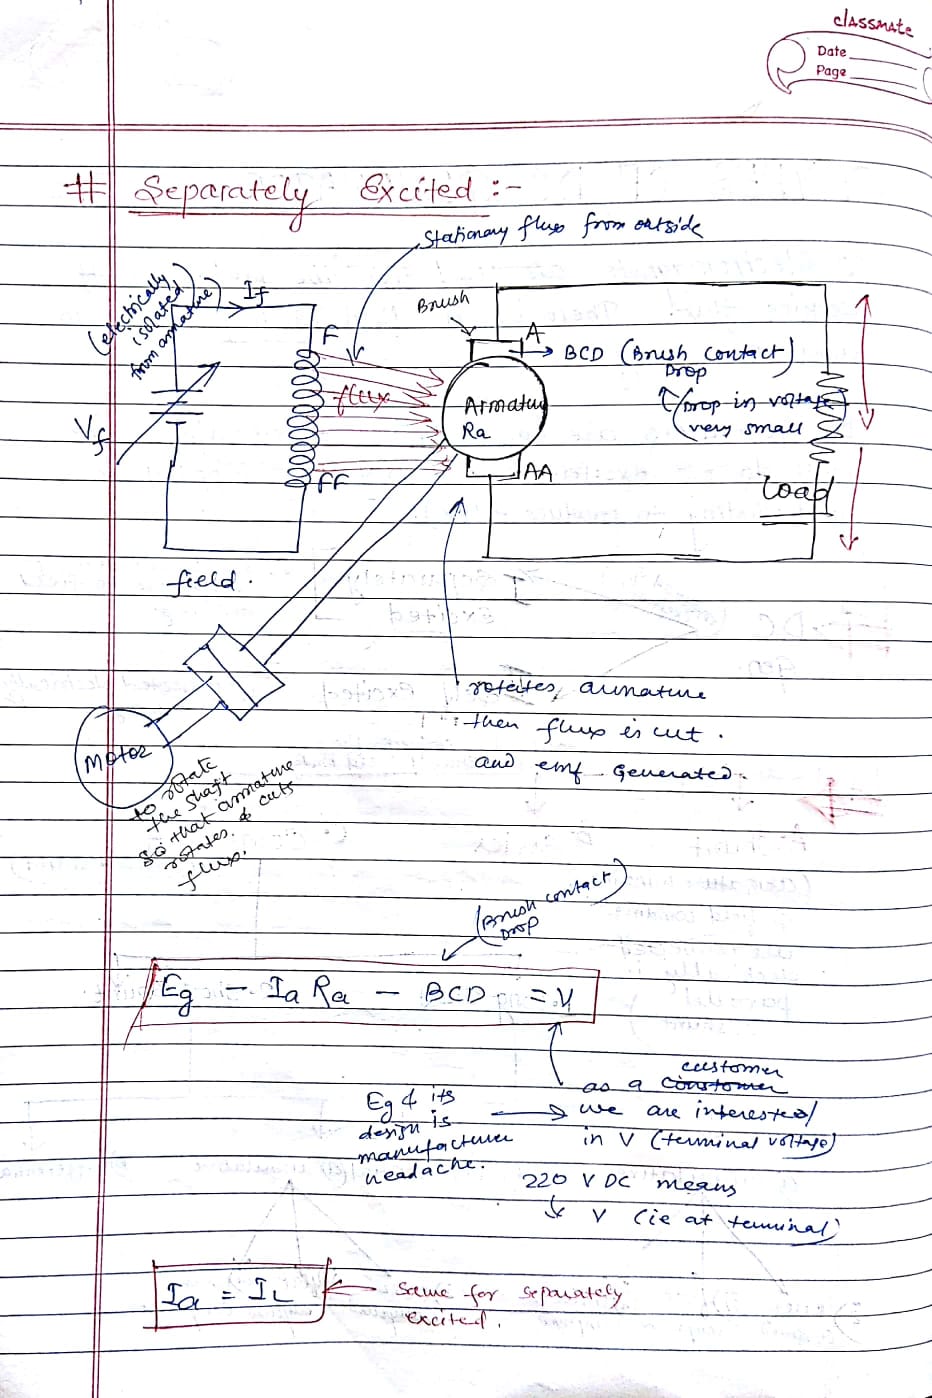 classmate
Date
Page
# Separately Excited :-
Stationary flux from outside
(electrically
isolated
from armature)
If
Brush
F
A
BCD (Brush Contact)
Drop
flux
Armature
Ra
(Drop in voltage
very small)
Vf
FF
AA
Load
field.
rotates, armature
then flux is cut.
and emf generated.
Motor
to rotate
the shaft
so that armature
rotates & cuts
flux.
(Brush contact)
Drop
Eg - Ia Ra - BCD = V
customer
as a constomer
Eg & its
design is
manufacturer
headache.
we are interested
in V (terminal voltage)
220 V DC means
V (ie at terminal)
Ia = IL
Same for separately
excited.